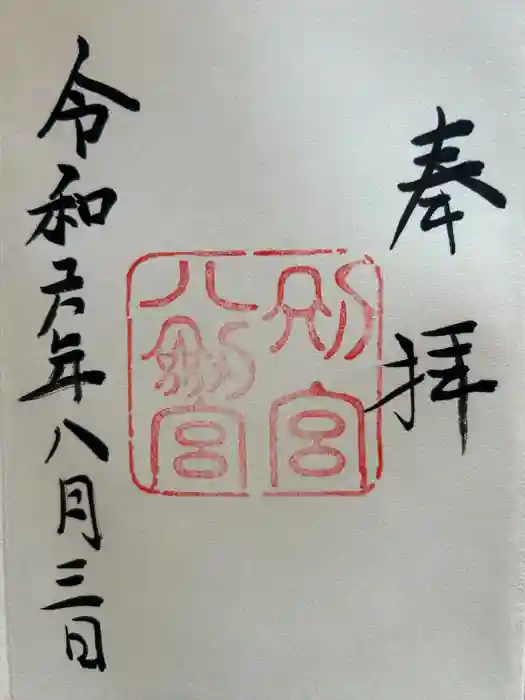 奉拝
別宮
八剣宮
令和五年八月三日